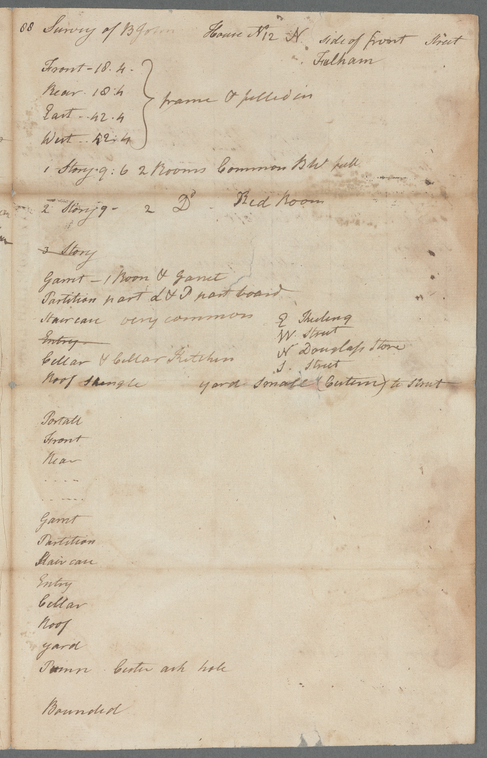 88 Survey of House No 12 N side of front Street
Fulham
Front - 18.4.
Rear. 18.4 frame & filled in
East - 42.4
West - 42.4
1 Story 9: 6 2 Rooms Common BW full
2 Story 9 - 2 Do Bed Room
3 Story
Garret - 1 Room & Garret
Partition part L & P part board
Stair case very common
E Dwelling
Entry
W Street
Cellar & Cellar Kitchen
N Douglass Store
S. Street
Roof Shingle yard small (Cistern) to Street
Portall
Front
Rear
Garret
Partition
Stair case
Entry
Cellar
Roof
yard
Cister ash hole
Bounded